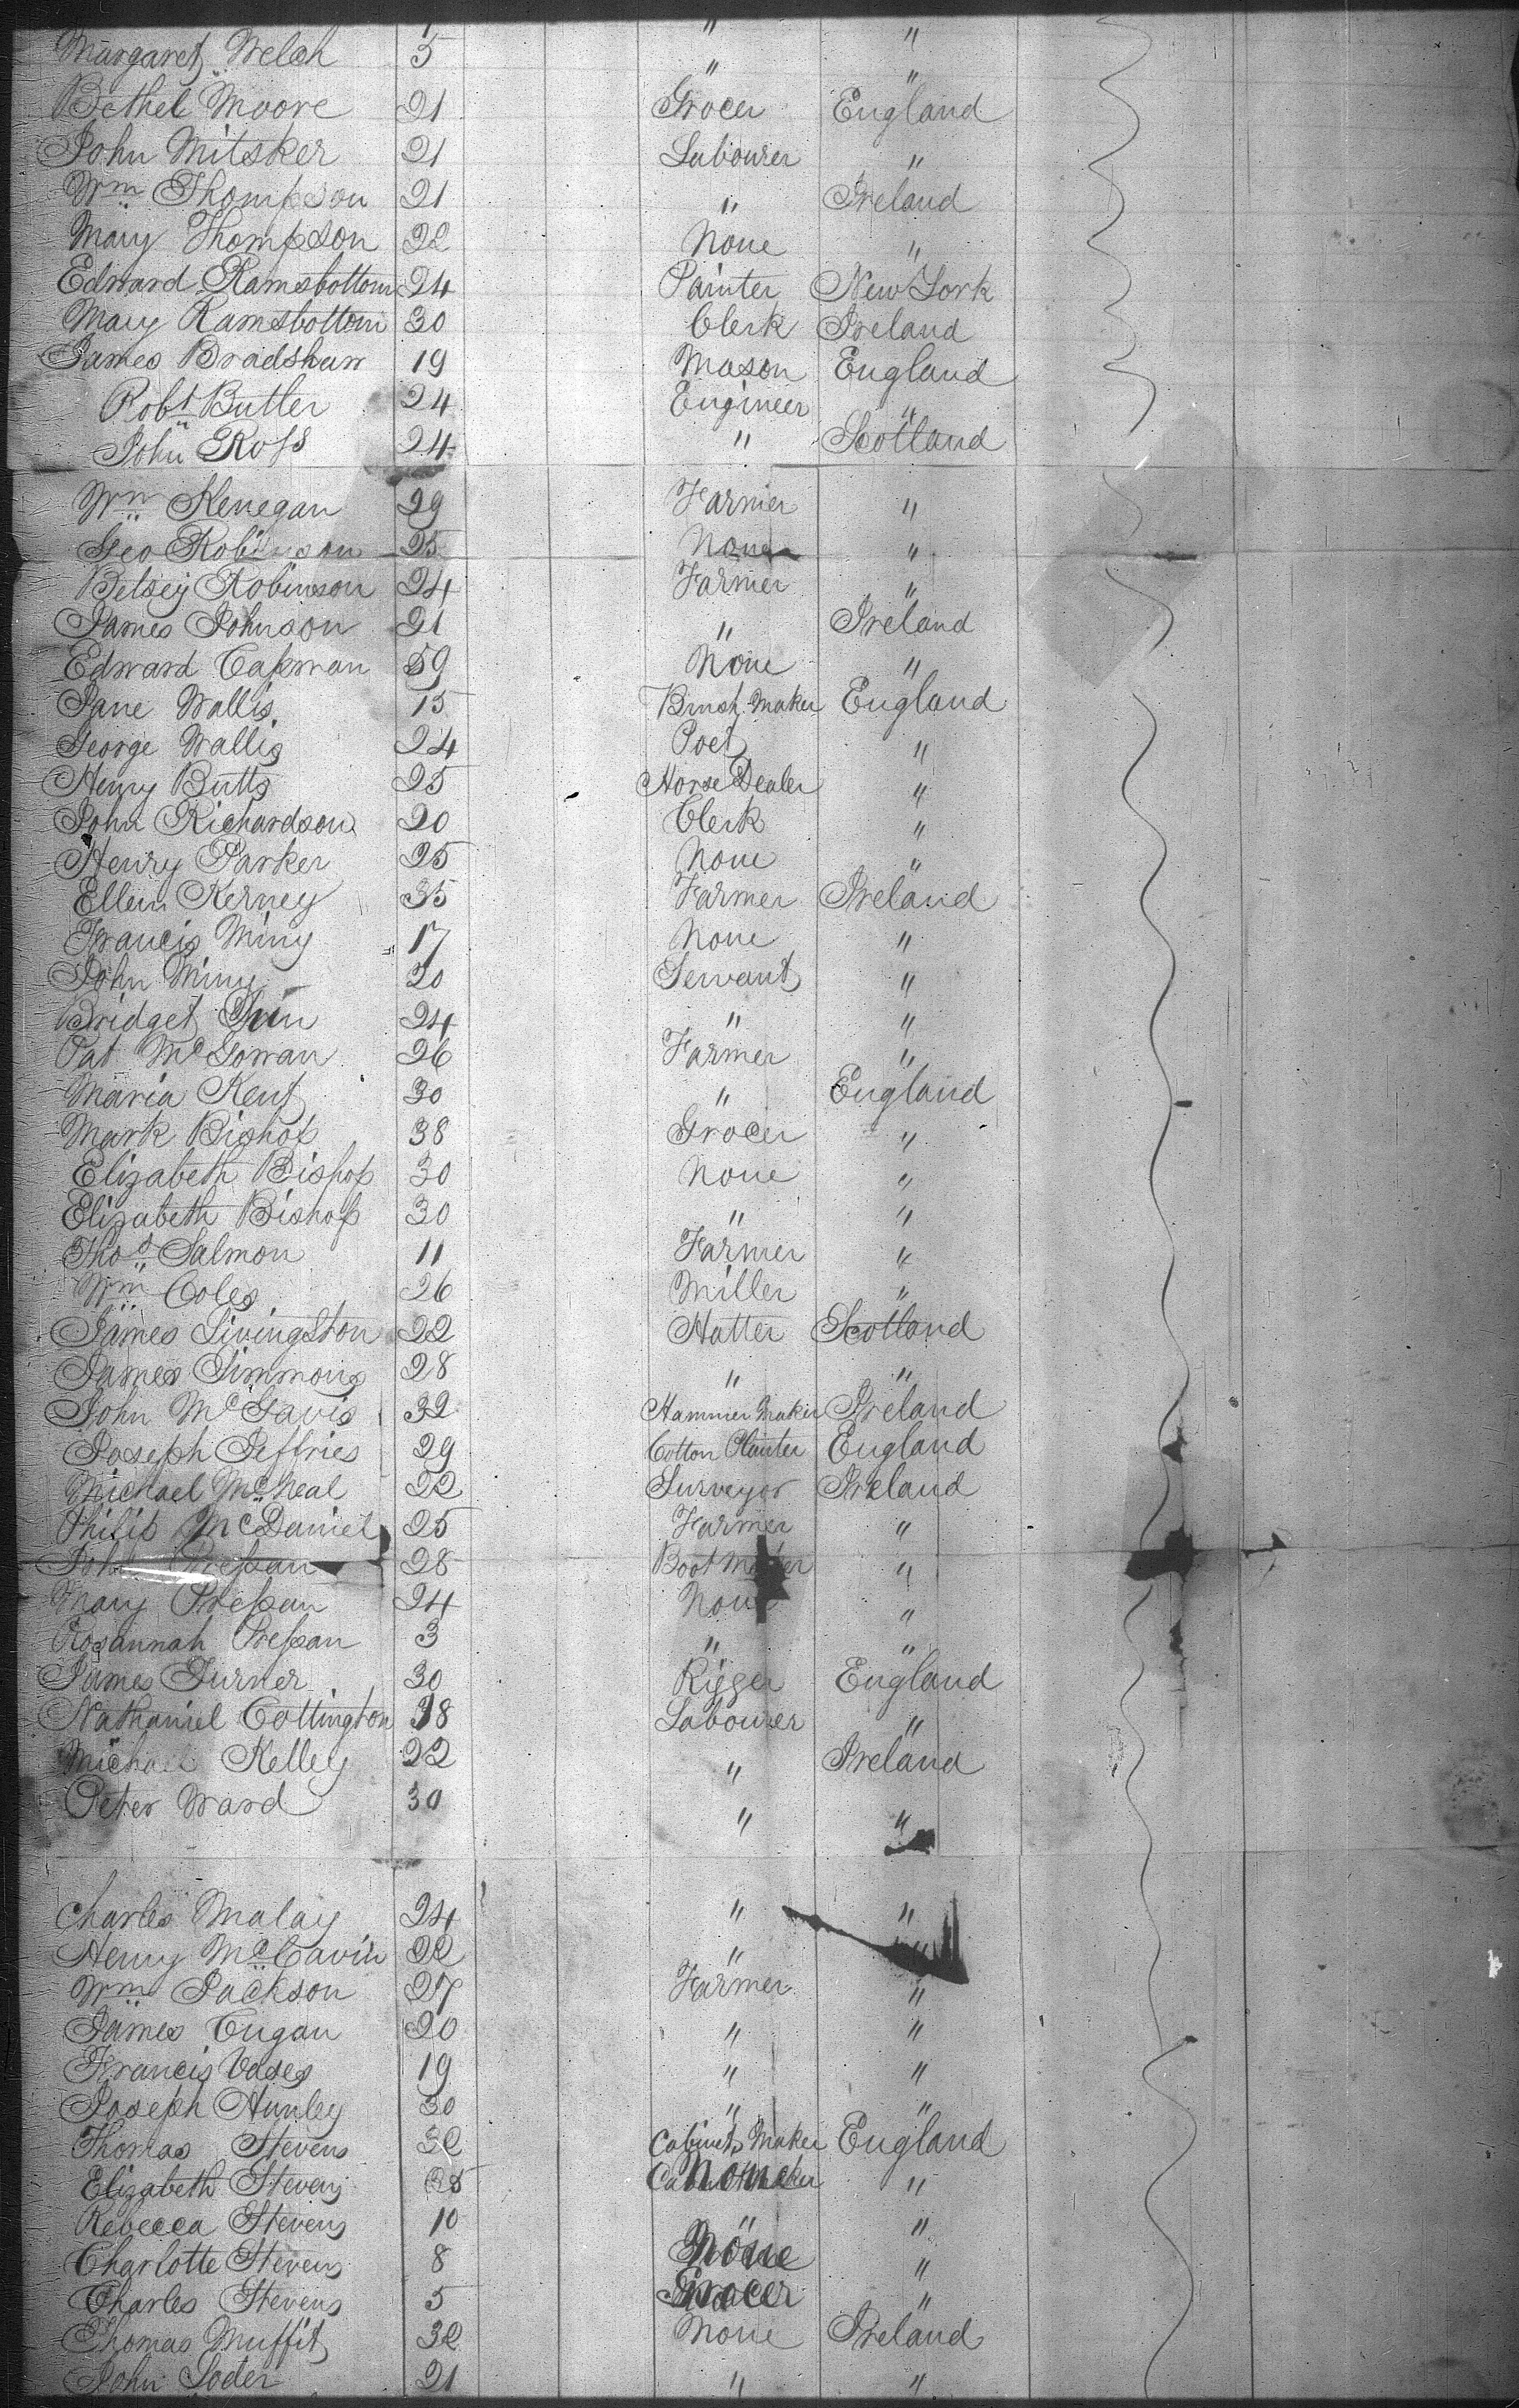 " "
Margaret Welch 5 " "
Bethel Moore 21 Grocer England
John Mitsker 21 Labourer "
Wm Thompson 21 " Ireland
Mary Thompson 22 None "
Edward Ramsbottom 24 Painter New York
Mary Ramsbottom 30 Clerk Ireland
James Bradshaw 19 Mason England
Robt Butler 24 Engineer "
John Ross 24 " Scotland
Wm Kenegan 29 Farmer "
Geo Robinson 25 None "
Betsey Robinson 24 Farmer "
James Johnson 21 " Ireland
Edward 59 None "
Jane Wallis 15 Brush Maker England
George Wallis 24 Poet "
Henry Butts 25 Horse Dealer "
John Richardson 20 Clerk "
Henry Parker 25 None "
Ellen Kerney 35 Farmer Ireland
Francis Miny 17 None "
John Miny 30 Servant "
Bridget 24 " "
Pat McGowan 26 Farmer "
Maria Kent 30 " England
Mark Bishop 38 Grocer "
Elizabeth Bishop 30 None "
Elizabeth Bishop 30 " "
Thos Salmon 11 Farmer "
Wm Coles 26 Miller "
James Livingston 22 Hatter Scotland
James Simmons 28 " "
John McGavis 32 Hammer Maker Ireland
Joseph Jeffries 29 Cotton Planter England
Michael McNeal 22 Surveyor Ireland
Philip McDaniel 25 Farmer "
John Pressan 28 Boot Maker "
Mary Pressan 24 None "
Rosannah Pressan 3 " "
James Turner 30 Rigger England
Nathaniel Cottington 38 Labourer "
Michael Kelley 22 " Ireland
Peter Ward 30 " "
Charles Malay 24 " "
Henry McCavin 22 " "
Wm Jackson 27 Farmer "
James Cugan 20 " "
Francis Vases 19 " "
Joseph Hunley 30 " "
Thomas Stevens 32 Cabinet Maker England
Elizabeth Stevens 35 None "
Rebecca Stevens 10 " "
Charlotte Stevens 8 None "
Charles Stevens 5 Grocer "
Thomas Muffit 32 None Ireland
John Soder 21 " "